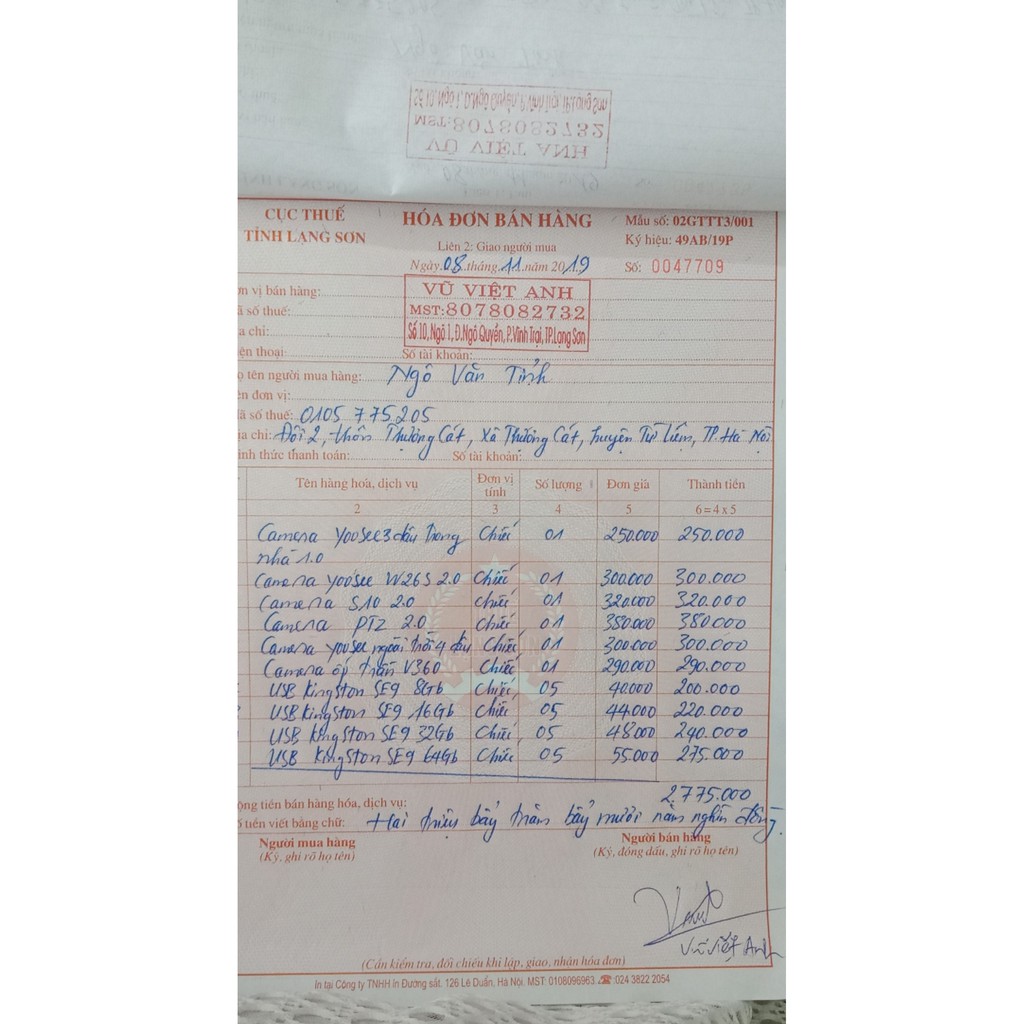 VŨ VIỆT ANH
MST:8078082732
Số 10, Ngõ 1, Đ.Ngô Quyền, P.Vĩnh Trại, TP.Lạng Sơn
CỤC THUẾ
TỈNH LẠNG SƠN
HÓA ĐƠN BÁN HÀNG
Liên 2: Giao người mua
Ngày 08 tháng 11 năm 2019
Mẫu số: 02GTTT3/001
Ký hiệu: 49AB/19P
Số: 0047709
ơn vị bán hàng:
ã số thuế:
ịa chỉ:
iện thoại:
Số tài khoản:
VŨ VIỆT ANH
MST:8078082732
Số 10, Ngõ 1, Đ.Ngô Quyền, P.Vĩnh Trại, TP.Lạng Sơn
ọ tên người mua hàng: Ngô Văn Tỉnh
ên đơn vị:
ã số thuế: 0105 775.205
ịa chỉ: Đội 2, thôn Thượng Cát, Xã Thượng Cát, huyện Từ Liêm, TP. Hà Nội
ình thức thanh toán: Số tài khoản:
Tên hàng hóa, dịch vụ Đơn vị tính Số lượng Đơn giá Thành tiền
2 3 4 5 6 = 4 x 5
Camera Yoosee 3 dâu trong Chiếc 01 250.000 250.000
nhà 1.0
Camera Yoosee W26S 2.0 Chiếc 01 300.000 300.000
Camera S10 2.0 Chiếc 01 320.000 320.000
Camera PTZ 2.0 Chiếc 01 380.000 380.000
Camera Yoosee ngoài trời 4 dâu Chiếc 01 300.000 300.000
Camera ốp trần V360 Chiếc 01 290.000 290.000
USB Kingston SE9 8Gb Chiếc 05 40.000 200.000
USB Kingston SE9 16Gb Chiếc 05 44.000 220.000
USB Kingston SE9 32Gb Chiếc 05 48.000 240.000
USB Kingston SE9 64Gb Chiếc 05 55.000 275.000
ộng tiền bán hàng hóa, dịch vụ: 2.775.000
ố tiền viết bằng chữ: Hai triệu bảy trăm bảy mươi năm nghìn đồng.
Người mua hàng
(Ký, ghi rõ họ tên)
Người bán hàng
(Ký, đóng dấu, ghi rõ họ tên)
Vũ Việt Anh
(Cần kiểm tra, đối chiếu khi lập, giao, nhận hóa đơn)
In tại Công ty TNHH in Đường sắt. 126 Lê Duẩn, Hà Nội. MST: 0108096963 ☎:024 3822 2054